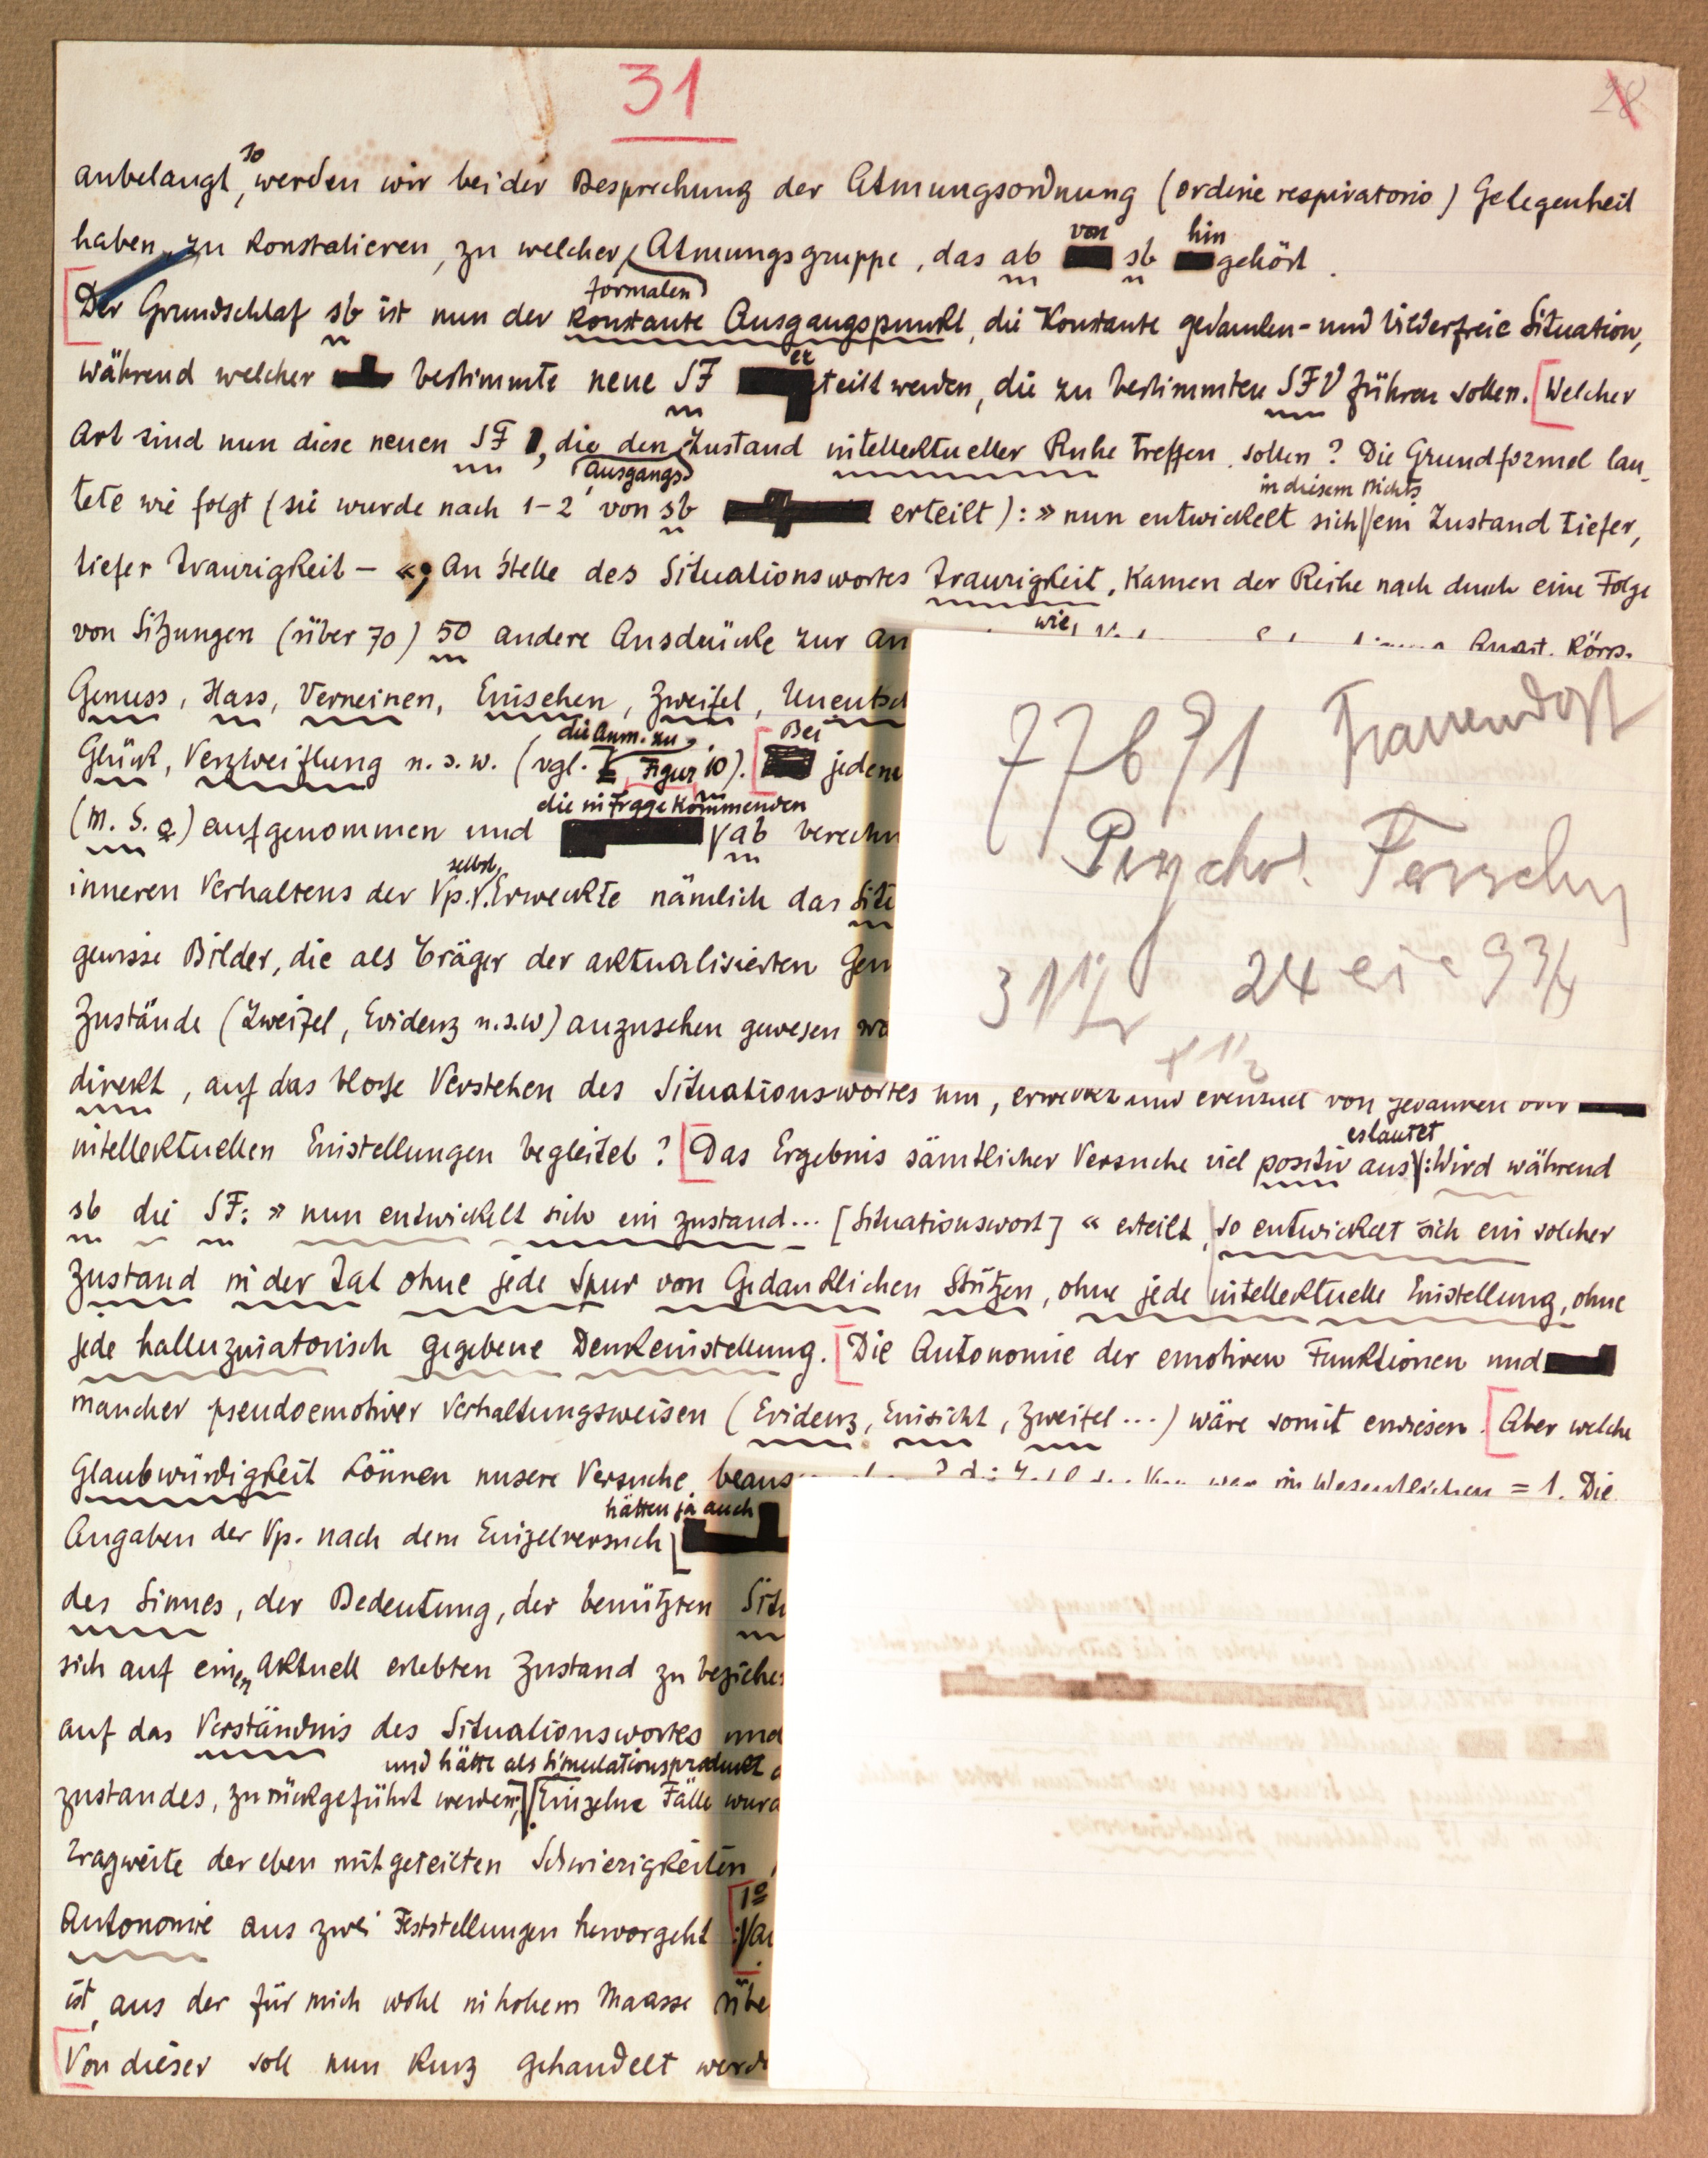 31
28
anbelangt, so werden wir bei der Besprechung der Atmungsordnung (ordine respiratorio) Gelegenheit
haben, zu konstatieren, zu welcher Atmungsgruppe, das ab von sb hin gehört.
Der Grundschlaf sb ist nun der formalen konstante Ausgangspunkt, die konstante gedanken- und bilderfreie Situation,
während welcher bestimmte neue SF erteilt werden, die zu bestimmten SFV führen sollen. Welcher
Art sind nun diese neuen SF, die den Ausgangs Zustand intellektueller Ruhe treffen sollen? Die Grundformel lau-
tete wie folgt (sie wurde nach 1-2' von sb erteilt): » nun entwickelt sich in diesem Nichts ein Zustand tiefer,
tiefer Traurigkeit — «; An Stelle des Situationswortes Traurigkeit, kamen der Reihe nach durch eine Folge
von Sitzungen (über 70) 50 andere Ausdrücke zur An wie
Genuss, Hass, Verneinen, Einsehen, Zweifel, Unentsch
Glück, Verzweiflung u. s. w. (vgl. die Anm. zu Figur 10). Bei jedem
(M. S. Q) aufgenommen und die in Frage kommenden ab berechn
inneren Verhaltens der Vp. selbst. Erweckte nämlich das Sit
gewisse Bilder, die als Träger der aktualisierten Gem
Zustände (Zweifel, Evidenz u.s.w) anzusehen gewesen wä
direkt, auf das bloße Verstehen des Situationswortes hin, erweckt und eventuell von Gedanken oder
intellektuellen Einstellungen begleitet? Das Ergebnis sämtlicher Versuche viel positiv aus; es lautet: Wird während
sb die SF: » nun entwickelt sich ein Zustand... [Situationswort] « erteilt, so entwickelt sich ein solcher
Zustand in der Tat ohne jede Spur von Gedanklichen Stützen, ohne jede intellektuelle Einstellung, ohne
jede halluzinatorisch gegebene Denkeinstellung. Die Autonomie der emotiven Funktionen und
mancher pseudoemotiver Verhaltungsweisen (Evidenz, Einsicht, Zweifel...) wäre somit erwiesen. Aber welche
Glaubwürdigkeit können unsere Versuche beans im Wesentlichen = 1. Die
Angaben der Vp. nach dem Einzelversuch hätten ja auch
des Sinnes, der Bedeutung, der benützten Situ
sich auf einen aktuell erlebten Zustand zu beziehe
auf das Verständnis des Situationswortes und
zustandes, zurückgeführt werden, und hätte als Simulationsprodukt Einzelne Fälle wurd
Tragweite der eben mitgeteilten Schwierigkeiten
Autonomie aus zwei Feststellungen hervorgeht: 1º
ist, aus der für mich wohl in hohem Maasse übe
Von dieser soll nun kurz gehandelt werd
Psychol. Forschg
31 1/2
24
9 3/4
+ 1 1/2